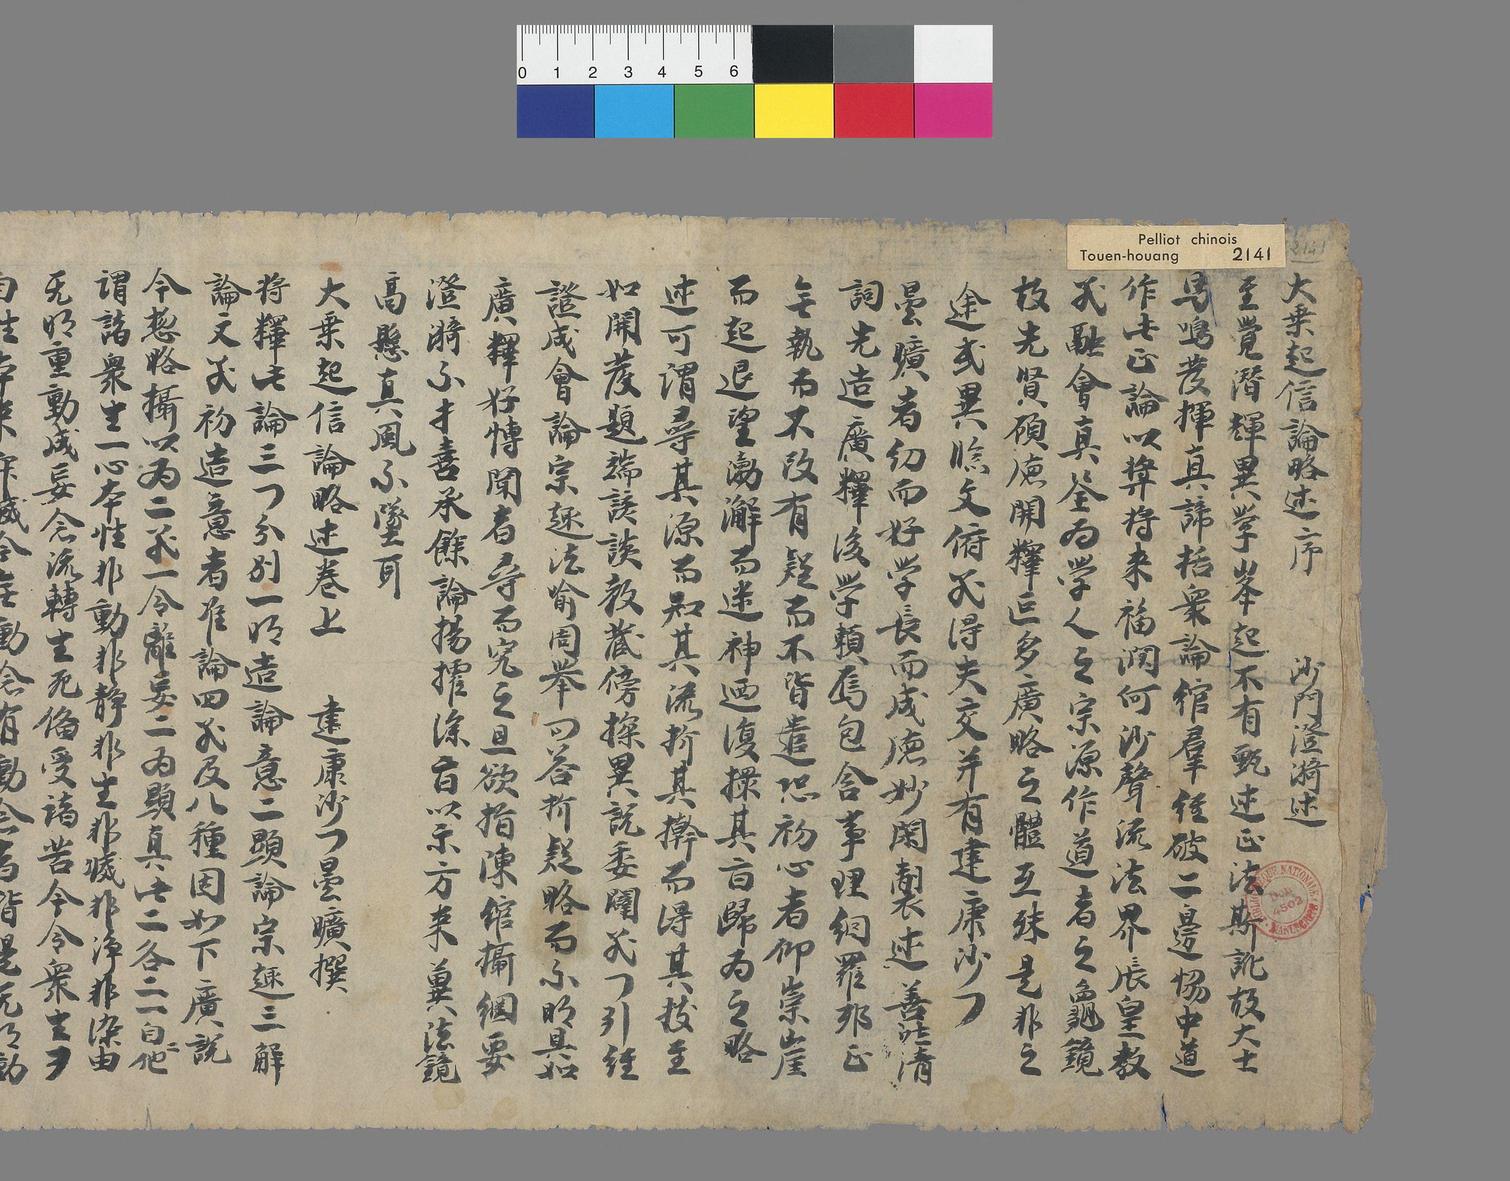 Pelliot chinois
Touen-houang 2141
0 1 2 3 4 5 6
大乘起信論略述序 沙門澄漪述
至覺潛輝異學峯起不有甄述正法斯訛故大士
馬鳴發揮真諦括衆論綰羣經破二邊惕中道
作此正論以弊将来福潤何沙聲流法界辰皇教
義融會真筌为學人之宗源作道者之龜鏡
故先賢碩德開釋巨多廣略之體互殊是非之
途或異臨文俯義得失交并有建康沙门
曇曠者幼而好學長而成德妙閑製述善能清
詞先造廣釋後學賴焉包含事理網羅邪正
無執而不改有疑而不皆遣恐初心者仰崇崖
而起退望渤澥而迷神迺復撮其旨歸为之略
述可謂尋其源而知其流折其幹而得其枝至
如開發題端談教藏傍探異説委闡義门引經
證成會論宗趣法喻周舉问答折疑略而不明具如
廣釋好博聞者尋而究之且欲指陳綰攝綱要
澄漪不才喜承餘論揚搉深旨以示方来冀法鏡
高懸真風不墜耳
大乘起信論略述卷上 建康沙门曇曠撰
将釋此論三门分别一明造論意二顯論宗趣三解
論文義初造意者准論四義及八種因如下廣説
今惣略攝以为二義一令離妄二为顯真此二各二自他
謂諸衆生一心本性非動非静非生非滅非净非染由
无明熏動成妄念流轉生死俻受諸苦今令衆生